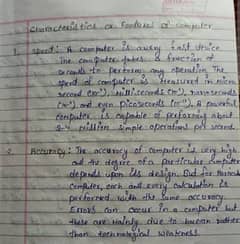 Characteristics or Features of Computer
1. Speed: A computer is a very fast device
The computer takes a fraction of
seconds to perform any operation. The
speed of computer is measured in micro
second (10⁻⁶), milliseconds (10⁻³), nanoseconds
(10⁻⁹) and even picoseconds (10⁻¹²). A powerful
computer is capable of performing about
3-4 million simple operations per second.
2. Accuracy: The accuracy of computer is very high
and the degree of a particular computer
depends upon its design. But for
computer, each and every calculation is
performed with the same accuracy.
Errors can occur in a computer but
these are mainly due to human rather
than technological weakness.